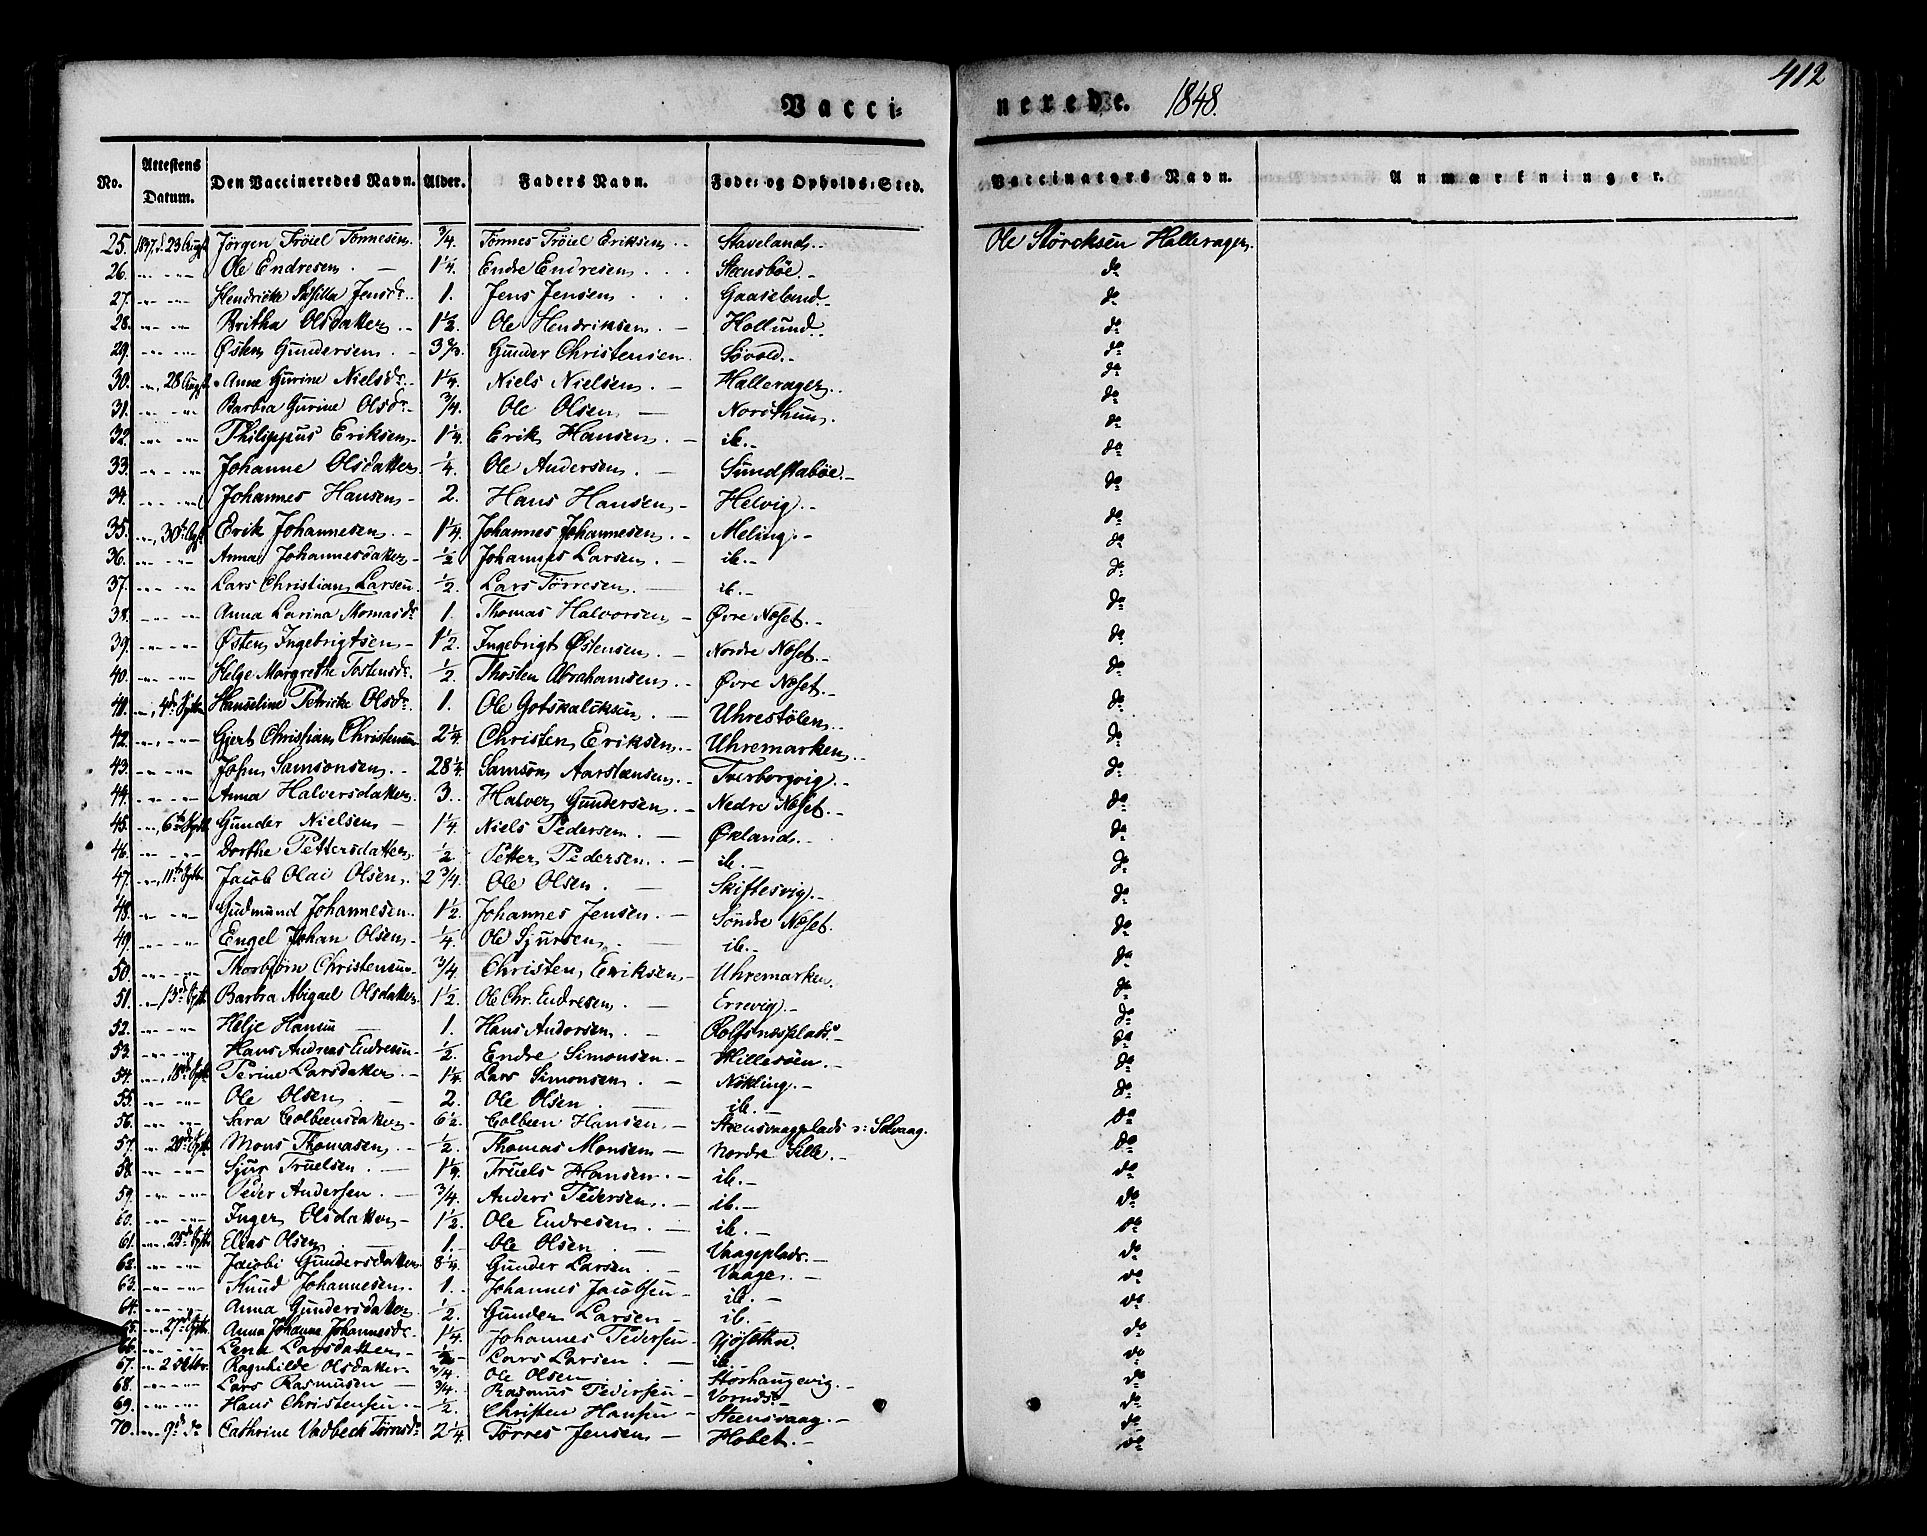 412
Vacci=
nerede. 1848.
No. Attestens Datum. Den Vaccineredes Navn. Alder. Faders Navn. Føde= og Opholds=Sted. Vaccinators Navn. Anmærkninger.
25. 1847, d. 23 Augst Jörgen Tröiel Tönnesen 3/4. Tönnes Tröiel Eriksen Staveland. Ole Störcksen Halleragen.
26. Ole Endresen. 1 1/4. Endre Endresen Steensböe. do
27. Hendricke Jensdr. 1. Jens Jensen Gaaseland. do
28. Britha Olsdatter 1 1/2. Ole Hendriksen. Hollund. do
29. Østen Gundersen 3 Gunder Christensen Søvold. do
30. 28 Augst Anne Gurine Nielsdr. 1 1/4. Niels Nielsen. Halleragen. do
31. Barbra Gurine Olsdr. 3/4. Ole Olsen Norsthun. do
32. Philippus Eriksen 1 1/4. Erik Hansen. ib. do
33. Johanne Olsdatter 1/4. Ole Andersen. Sundstaböe. do
34. Johannes Hansen 2. Hans Hansen Helvig. do
35. 30te Augst Erik Johannesen. 1 1/4. Johannes Johannesen. Meling. do
36. Anna Johannesdatter 1/2 Johannes Larsen. ib. do
37. Lars Christian Larsen. 1/2. Lars Törresen. ib. do
38. Anna Larina Thomasdr 1. Thomas Halvorsen Øvre Næset. do
39. Østen Ingebrigtsen 1 1/2. Ingebrigt Østensen. Nordre Næset. do
40. Helge Margrethe Tostensdr. 1/2. Thosten Abrahamsen. Øvre Næset. do
41. 4de Septbr Hanseline Petricke Olsdr. 1. Ole Gotskalcksen. Uhrestölen. do
42. Gjert Christian Christensen 2 1/4. Christen Eriksen. Uhremarken. do
43. John Samsonsen. 28 1/4. Samson Aarstensen. Tverborgvig. do
44. Anna Halversdatter 3. Halver Gundersen. Nedre Næset. do
45. 6te Septbr Gunder Nielsen 1 1/4. Niels Pedersen. Økland. do
46. Dorthe Pettersdatter 1/2. Petter Pedersen. ib. do
47. 11te Septbr Jacob Olai Olsen. 2 3/4. Ole Olsen. Skiftesvig. do
48. Gudmund Johannesen. 1 1/2. Johannes Jensen. Söndre Næset. do
49. Engel Johan Olsen 1/4. Ole Sjursen. ib. do
50. Thorbjörn Christensen 3/4. Christen Eriksen Uhremarken. do
51. 13de Septbr Barbra Abigael Olsdatter 1 1/2. Ole Chr. Endresen. Errevig. do
52. Helje Hansen 1. Hans Andersen. Rolfsnæsplads. do
53. Hans Andreas Endresen 1/2. Endre Simonsen. Hillesöen. do
54. 18de Septbr Perine Larsdatter 1 1/4. Lars Simonsen. Nökling. do
55. Ole Olsen. 2. Ole Olsen ib. do
56. Sara Colbeensdatter 6 1/2. Colbeen Hansen. Steensvaagplads v: Selvaag. do
57. 20de Septbr Mons Thomasen. 1/2. Thomas Monsen Nordre Lille. do
58. Sjur Truelsen. 1 1/4. Truels Hansen. ib. do
59. Peder Andersen. 3/4. Anders Pedersen. ib. do
60. Inger Olsdatter 1 1/2. Ole Endresen. ib. do
61. 25de Septbr Elias Olsen 1. Ole Olsen Vaageplads. do
62. Jacobi Gundersdatter 8 1/4. Gunder Larsen. Vaage. do
63. Knud Johannesen. 1. Johannes Jacobsen ib. do
64. Anna Gundersdatter 1/2. Gunder Larsen ib. do
65. 27de Septbr Anna Johanne Johannesdr. 1 1/4. Johannes Pedersen do
66. Lena Larsdatter Lars Larsen. ib. do
67. 2 Oktbr. Ragnhilde Olsdatter 3/4. Ole Olsen Storhaugevig. do
68. Lars Rasmusen 3/4. Rasmus Pedersen Vornds. do
69. Hans Christensen 1/2. Christen Hansen Steensvaag. do
70. 9de do Cathrine Vadbeck Törresdr 2 1/4. Törres Jensen Hobet. do